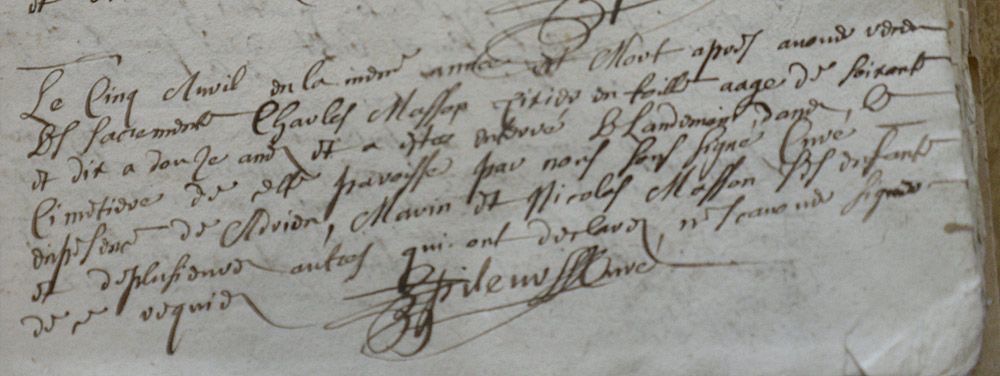 Le Cinq Avril en la meme année est Mort apres avoir receu
les sacrements Charles Masson aagé de soixante
et dix a douze ans et a esté enterré le Landemain dans le
Cimetiere de cette paroisse par nous sous signé Curé
en presence de Adrien, Marin et Nicolas Masson ses enfants
et de plusieurs autres qui ont declaré ne scavoir signer
de ce requis
Curé